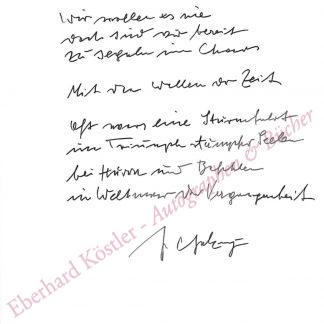 Wir wollen es nie
doch sind wir bereit
zu segeln im Chaos
Mit den Wellen der Zeit
Oft wars eine Sturmfahrt
im Triumph stumpfer Seelen
bei Hurra und Befehlen
im Weltmeer der Vergangenheit
Eberhard Köstler - Autographen & Bücher